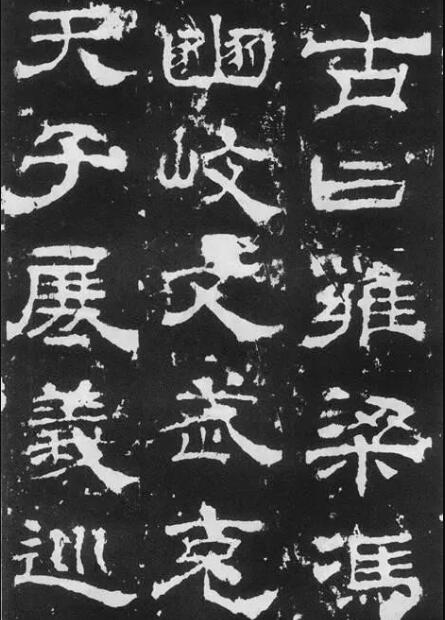 古曰雍梁馮
豳岐文武克
天子展義巡